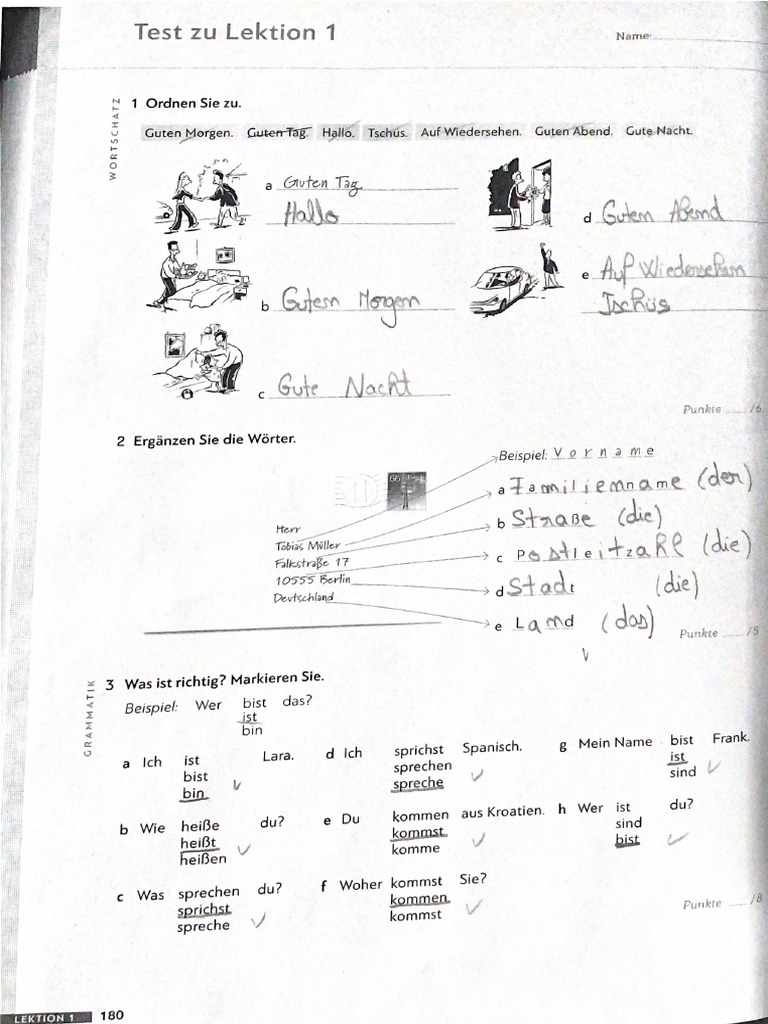 Test zu Lektion 1
Name:
WORTSCHATZ
1 Ordnen Sie zu.
Guten Morgen. Guten Tag. Hallo. Tschüs. Auf Wiedersehen. Guten Abend. Gute Nacht.
a Guten Tag
Hallo
d Guten Abend
e Auf Wiedersehen
Tschüs
b Guten Morgen
c Gute Nacht
Punkte /6
2 Ergänzen Sie die Wörter.
Beispiel: Vorname
a Familienname (der)
b Straße (die)
c Postleitzahl (die)
d Stadt (die)
e Land (das)
66
Herr
Tobias Müller
Falkstraße 17
10555 Berlin
Deutschland
Punkte /5
GRAMMATIK
3 Was ist richtig? Markieren Sie.
Beispiel: Wer bist das?
ist
bin
a Ich ist Lara.
bist
bin
d Ich sprichst Spanisch.
sprechen
spreche
g Mein Name bist Frank.
ist
sind
b Wie heiße du?
heißt
heißen
e Du kommen aus Kroatien.
kommst
komme
h Wer ist du?
sind
bist
c Was sprechen du?
sprichst
spreche
f Woher kommst Sie?
kommen
kommst
Punkte /8
LEKTION 1 180